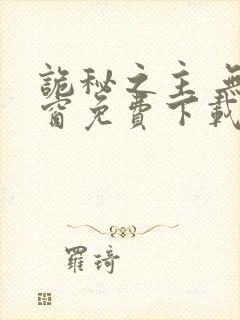 詭秘之主 無
窗免費下載
羅琦